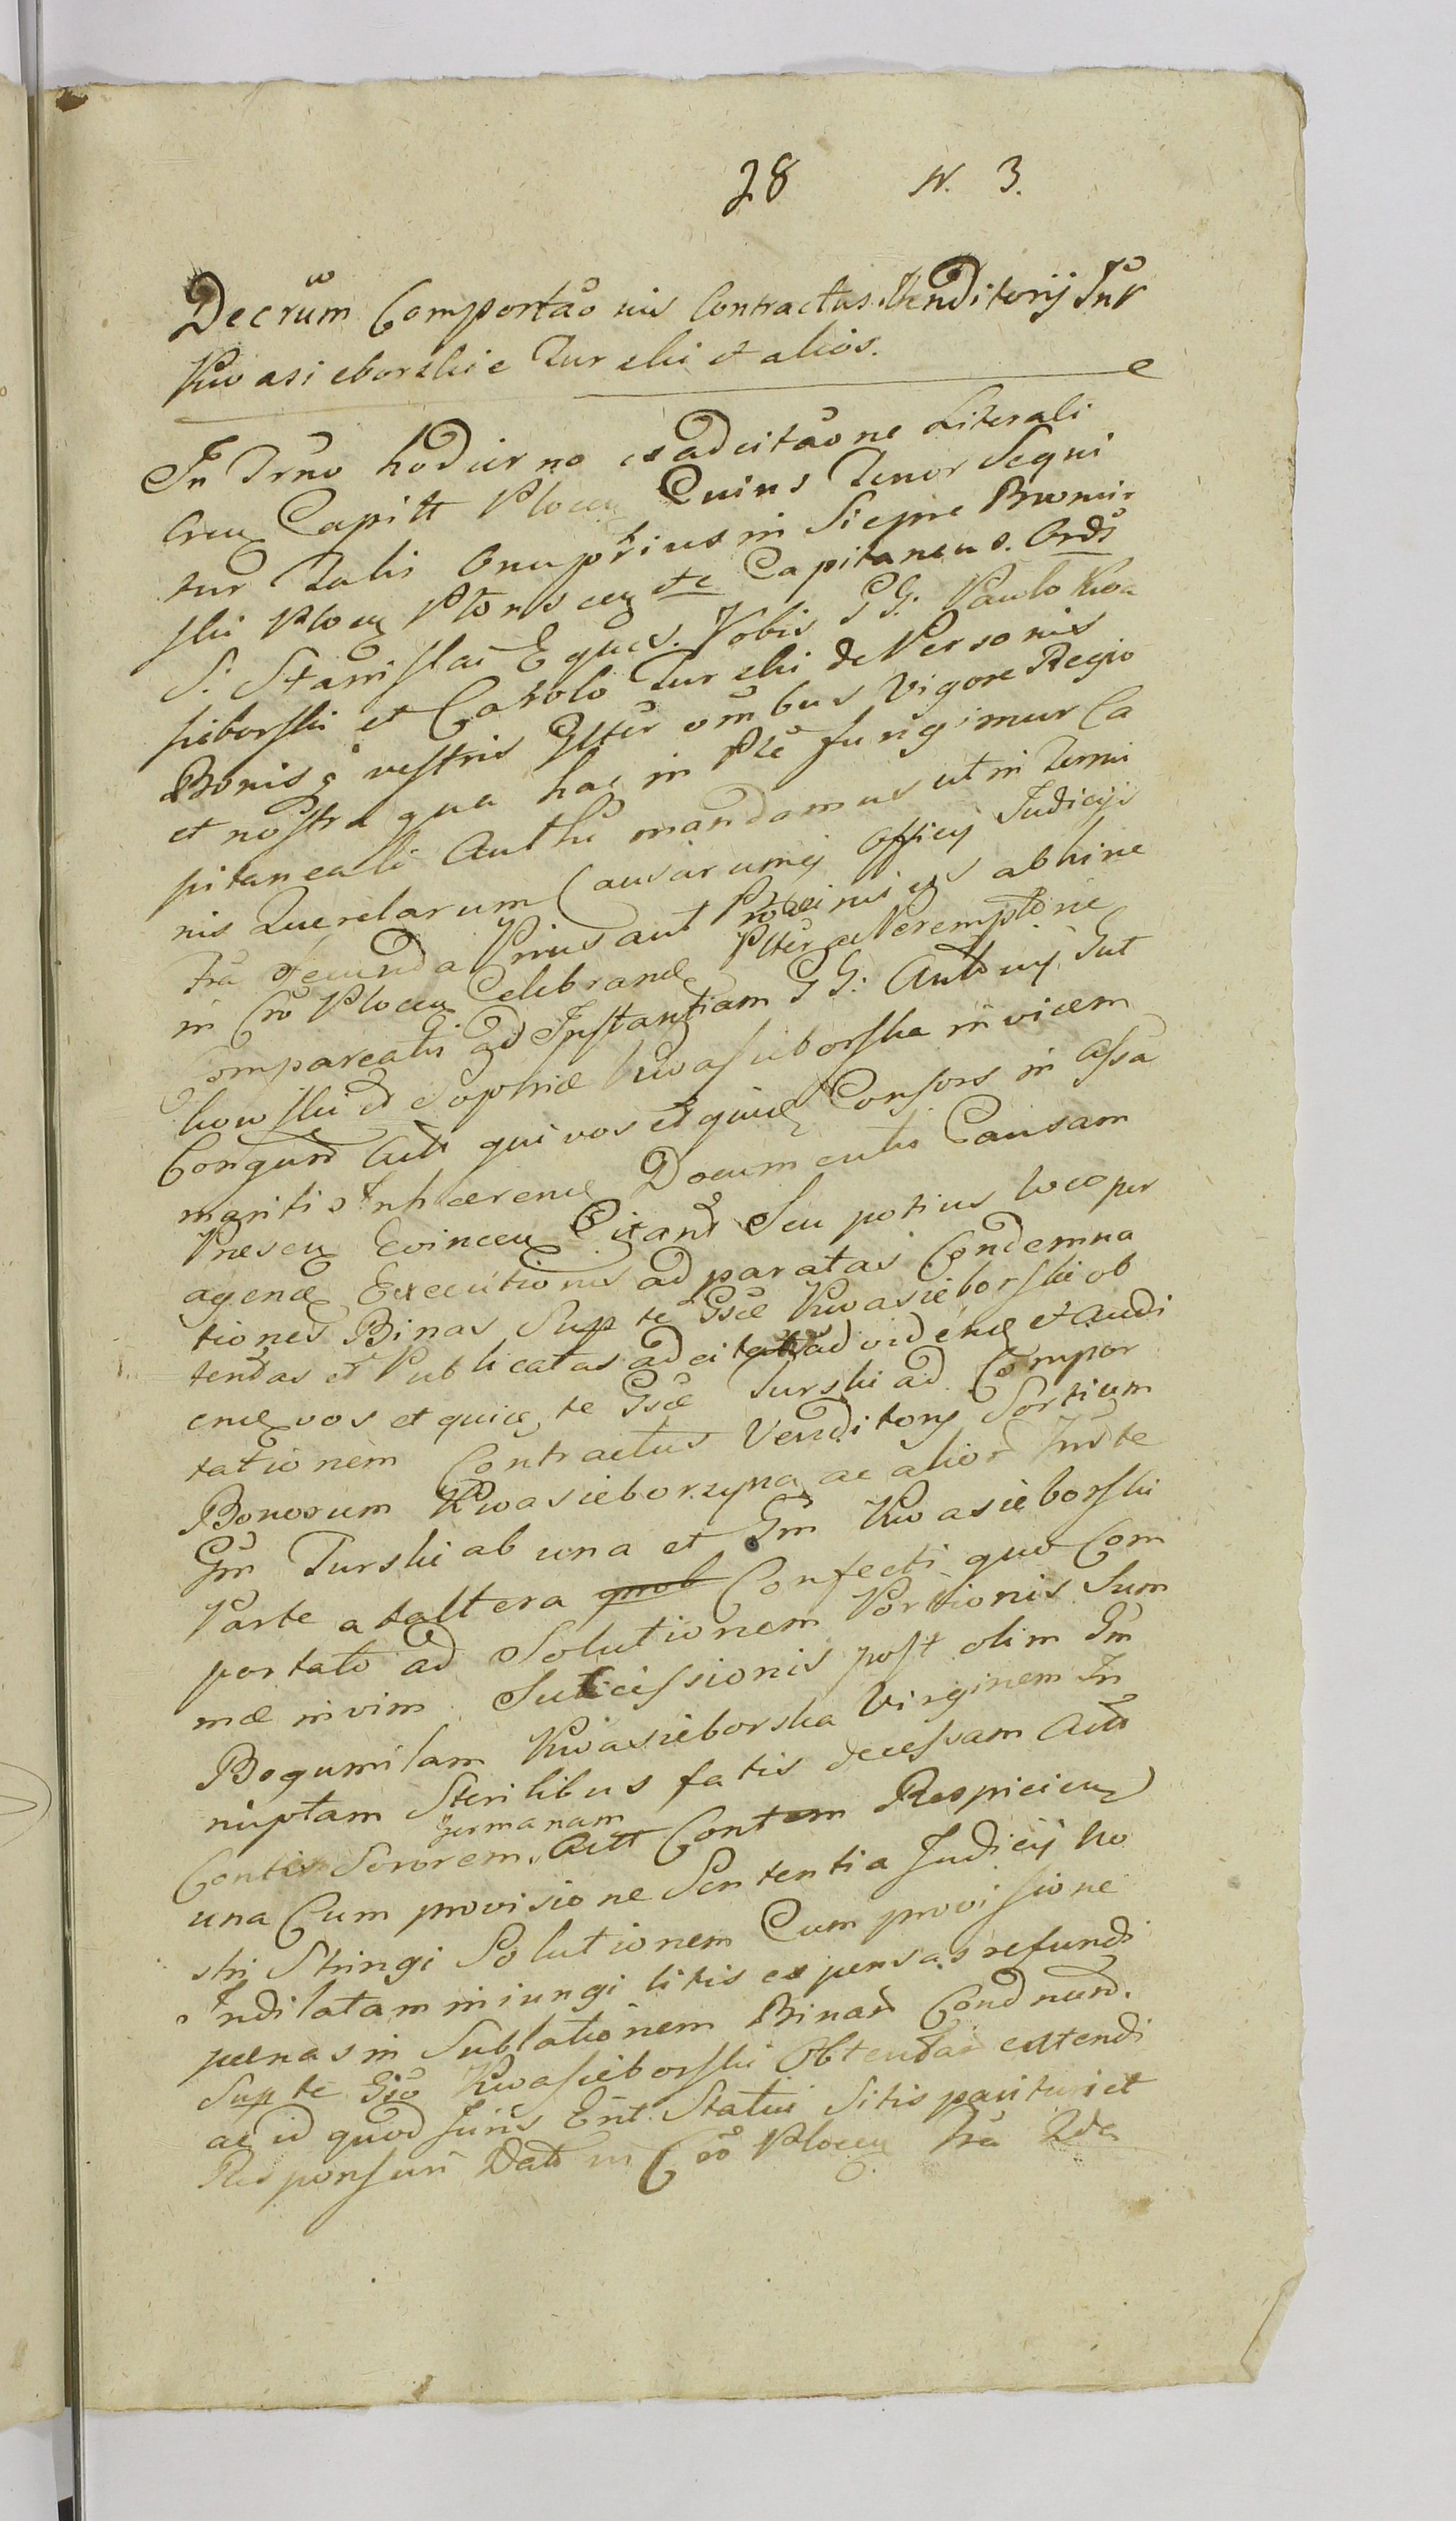 28 N. 3.
Decrūm Comportaōnis Contractus Venditorij Intr
Kwasieborskie Turski et alios.
In Trno hodierno ex adcitaōne Literali
Cren Capitt Plocen Cuius Tenor Sequi
tur Talis Onuphrius in Siepre Bromir
ski Plocen Plonscen etc Capitaneus. Ords
S. Stanislai Eques. Vobis GG: Paulo Kwa
sieborski et Carolo Turski de Personis
Bonisq vestris Gltter omibus Vigore Regio
et nostra qua hac in Pte fungimur Ca
pitaneali Autht mandamus ut in Termi
nis Querelarum Causarumq Officij Judicijs
Fra secunda Prius aut Proximius abhinc
in Cro Plocen Celebrand Ptter ac Peremptorie
Compareatis ad Instantiam GG: Antonij Gut
kowski et Sophiæ Kwasieborska in vicem
Coniugum Actt qui vos et quid Consors in Assa
maritis Inhærend Documentis Causam
Præsen Evincen Citant Seu potius loco per
agend Executionis ad paratas Condemna
tiones Binas Sup te Gse Kwasieborski ob
tentas et Publicatas adcitat ad vidend et audi
end vos et quid te Gse Turski ad Compor
tationem Contractus Venditorij Sortium
Bonorum Kwasieborzyna ac alior Inr te
Gm Turski ab una et Gm Kwasieborski
Parte ab altera quob Confecti quo Com
portato ad Solutionem Portionis Sum
mæ in vim Successionis post olim Gm
Bogumilam Kwasieborska Virginem In
nuptam Sterilibus fatis decessam Actt
Contis Sororem Germanam Actt Contem Respicien
una Cum provisione Sententia Judicij no
stri Stringi Solutionem Cum provisione
Indilatam iniungi litis expensas refundi
pœnas in Sublationem Binar Condnum.
Sup te Gso Kwasieborski Obtentar extendi
ac id quod Juris Ert Statui Sitis parituri et
Responsuri Dat in Cro Plocen Fra 2da